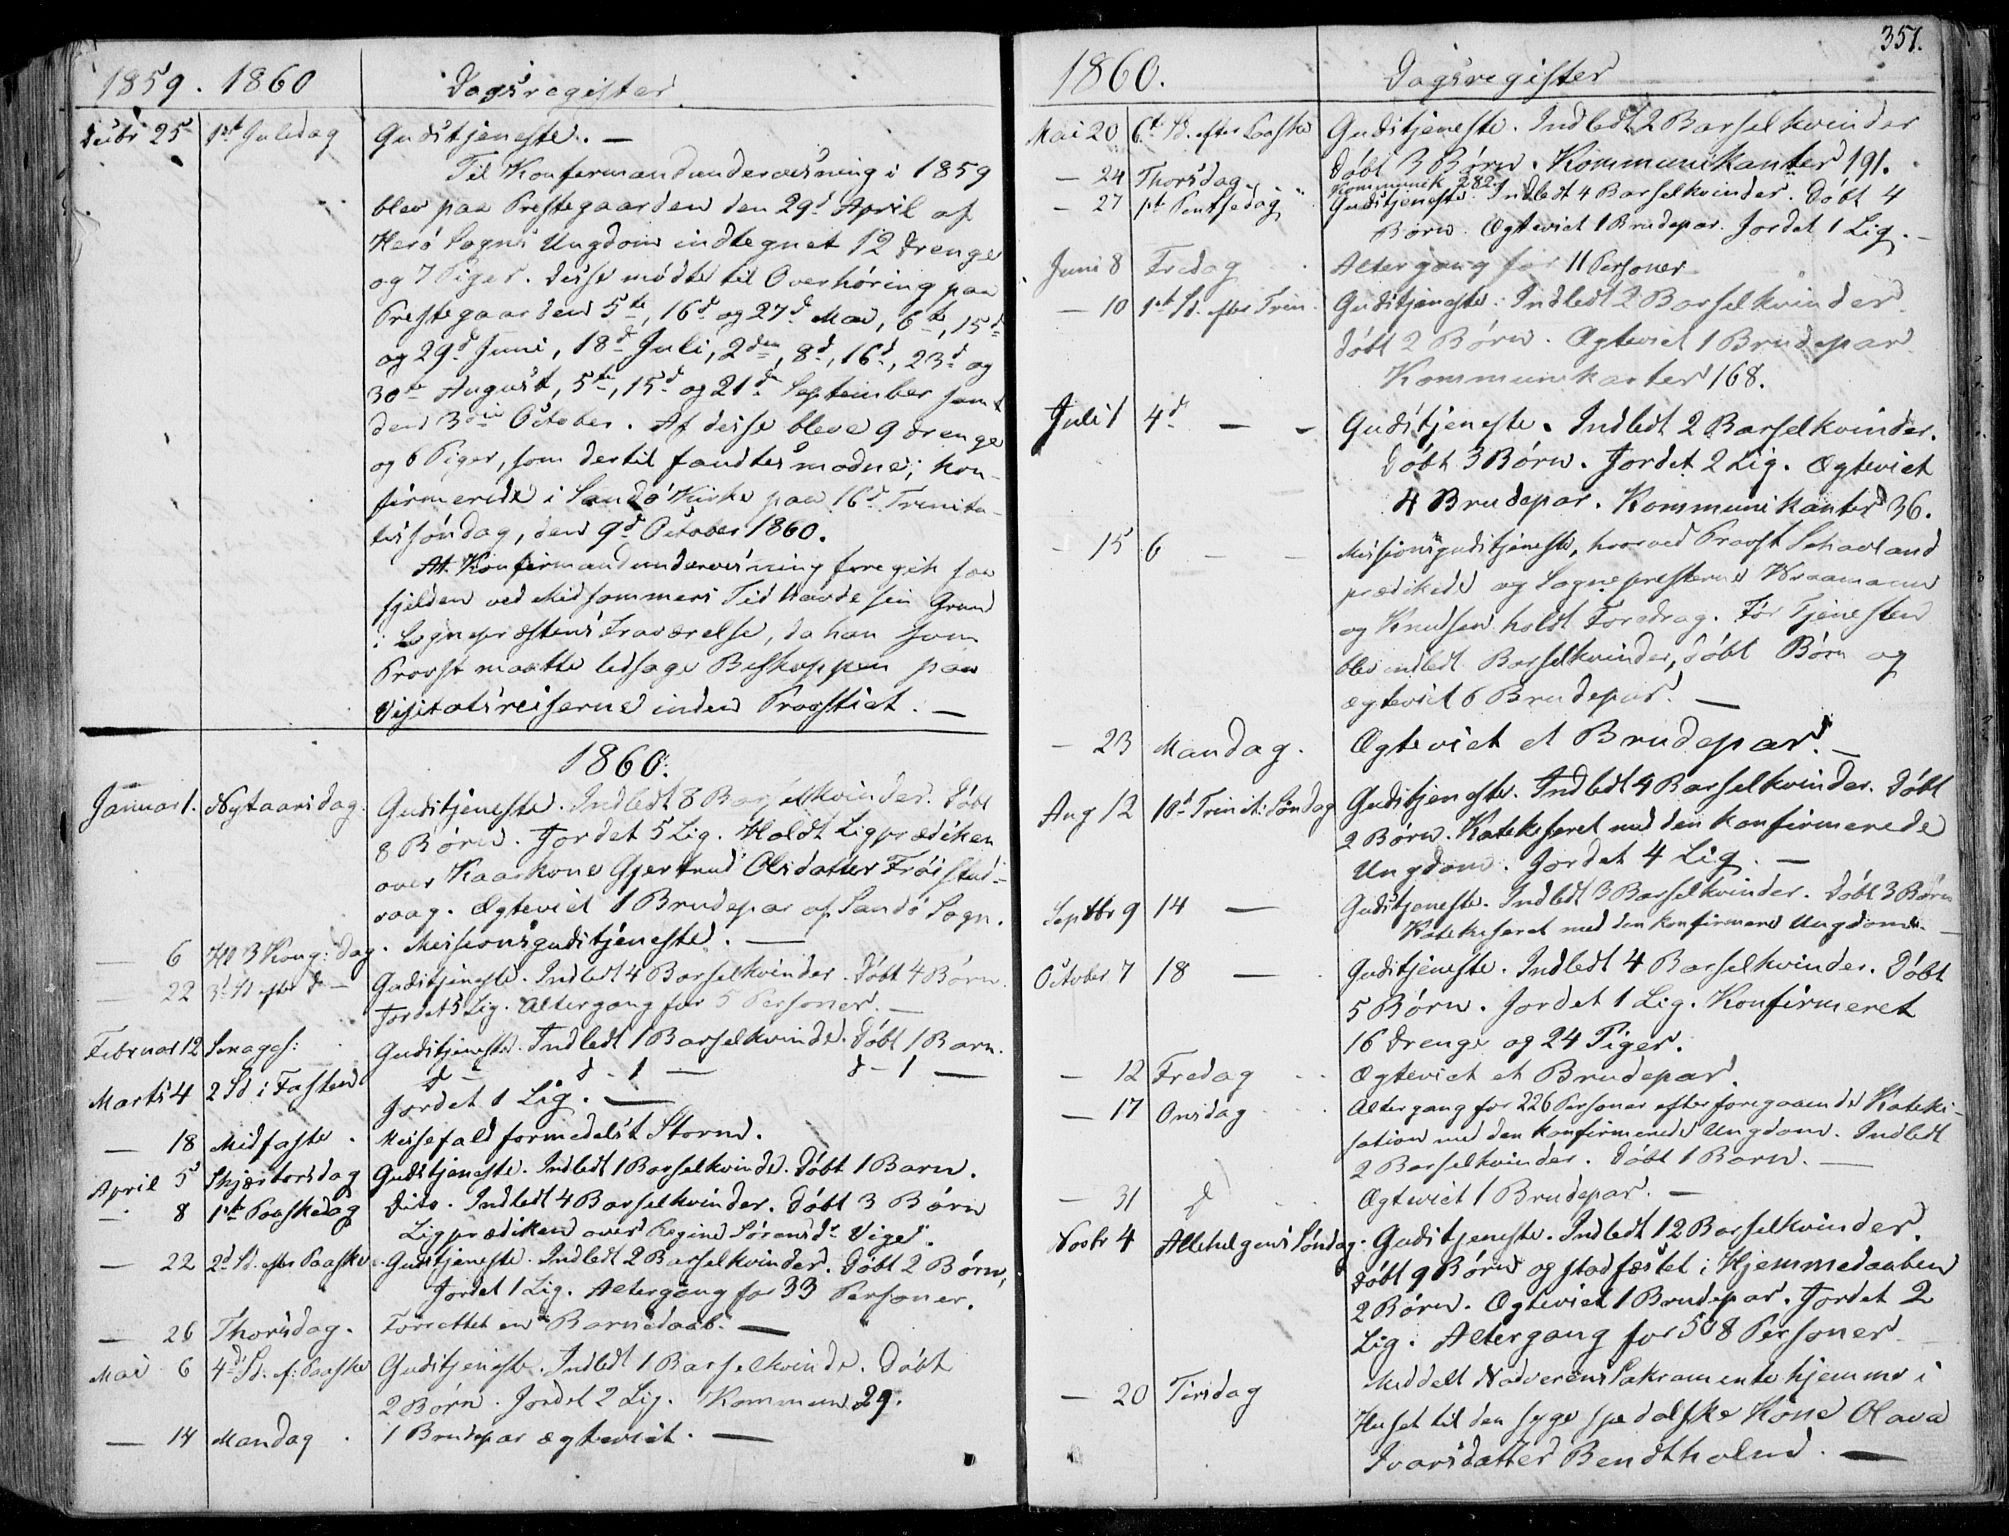 1859. 1860 Dagsregister
Decbr 25 1ste Juledag Gudstjeneste. —
Til Konfirmandundervisning i 1859
blev paa Prestegaarden den 29d April af
Herö Sogns Ungdom indtegnet 12 Drenge
og 7 Piger. Disse mødte til Overhøring paa
Prestegaarden 5te, 16d og 27d Mai, 6te, 15d
og 29d Juni, 18d Juli, 2den, 8d, 16d, 23d og
30te August, 5te, 15d og 21d September samt
den 3die October. Af disse bleve 9 Drenge
og 6 Piger, som dertil fandtes modne, kon-
firmerede i Sandö Kirke paa 16d Trinita-
tissöndag, den 9d October 1860.
At Konfirmandundervisning foregik saa
sjelden ved Midsommers Tid havde sin Grund
i Sognepræstens Fraværelse, da han som
Provst maatte ledsage Biskoppen paa
Visitatsreiserne inden Provstiet. —
1860.
Januar 1. Nytaarsdag. Gudstjeneste. Indledt 8 Barselkvinder. Döbt
8 Börn. Jordet 5 Lig. Holdt Ligprædiken
over Kaarkone Gjertrud Olsdatter Fröistad-
vaag. Ægteviet 1 Brudepar af Sandö Sogn.
— 6 Hll 3 Kong: Dag. Missionsgudstjeneste. —
— 22 3d Sd efter d — Gudstjeneste. Indledt 4 Barselkvinder. Döbt 4 Börn.
Jordet 5 Lig. Altergang for 5 Personer. —
Februar 12 Gudstjeneste. Indledt 1 Barselkvinde. Döbt 1 Barn.
Marts 4 2 Sd i Fasten d — d — 1 — d — 1 —
Jordet 1 Lig. —
— 18 Midfaste. Messefald formedelst Storm.
April 5 Skjærtorsdag Gudstjeneste. Indledt 1 Barselkvinde. Döbt 1 Barn.
— 8 1ste Paaskedag Dito. Indledt 4 Barselkvinder. Döbt 3 Börn
Ligprædiken over Regine Sörensdr Viges.
— 22 2d Sd. efter Paaske Gudstjeneste. Indledt 2 Barselkvinder. Döbt 2 Börn,
Jordet 1 Lig. Altergang for 33 Personer.
— 26 Thorsdag. Forrettet en Barnedaab. —
Mai 6 4d Sd. ef: Paaske Gudstjeneste. Indledt 1 Barselkvinde. Döbt
2 Börn. Jordet 2 Lig. Kommun 29.
— 14 Mandag. 1 Brudepar ægteviet. —
351.
1860. Dagsregister
Mai 20 6te Sd. efter Paaske Gudstjeneste. Indledt 2 Barselkvinder
Döbt 3 Börn. Kommunikanter 191.
— 24 Thorsdag Kommunik 282
— 27 1ste Pintsedag Gudstjeneste. Indledt 4 Barselkvinder. Döbt 4
Börn. Ægteviet 1 Brudepar. Jordet 1 Lig. —
Juni 8 Fredag Altergang for 11 Personer
— 10 1ste Sd. efter Trin. Gudstjeneste. Indledt 2 Barselkvinder
Döbt 2 Börn. Ægteviet 1 Brudepar
Kommunikanter 168.
Juli 1 4d — — Gudstjeneste. Indledt 2 Barselkvinder.
Döbt 3 Börn. Jordet 2 Lig. Ægteviet
4 Brudepar. Kommunikanter 36.
— 15 6 — — Missionsgudstjeneste, hvorved Provst Schavland
prædikede og Sognepresterne Kraamann
og Knudsen holdt Foredrag. För Tjenesten
blev indledt Barselkvinder, döbt Börn og
ægteviet 6 Brudepar. —
— 23 Mandag. Ægteviet et Brudepar. —
Aug 12 10d Trinit: Söndag Gudstjeneste. Indledt 4 Barselkvinder. Döbt
2 Börn. Katekiseret med den konfirmerede
Ungdom. Jordet 4 Lig. —
Septbr 9 14 — Gudstjeneste. Indledt 3 Barselkvinder. Döbt 3 Börn
Katekiseret med den konfirmere Ungdom. —
October 7 18 — Gudstjeneste. Indledt 4 Barselkvinder. Döbt
5 Börn. Jordet 1 Lig. Konfirmeret
16 Drenge og 24 Piger.
— 12 Fredag Ægteviet et Brudepar.
— 17 Onsdag Altergang for 226 Personer efter foregaaende Kateki-
sation med den konfirmerede Ungdom. Indledt
2 Barselkvinder. Döbt 1 Barn. —
— 31 d Ægteviet 1 Brudepar. —
Novbr 4 Allehelgens Söndag. Gudstjeneste. Indledt 12 Barselkvinder.
Döbt 9 Börn og stadfæstet i Hjemmedaaben
2 Börn. Ægteviet 1 Brudepar. Jordet 2
Lig. Altergang for 508 Personer
— 20 Tirsdag Meddelt Nadverens Sakramente hjemme i
Huset til den syge spedalske Kone Olava
Ivarsdatter Bendtholm. —